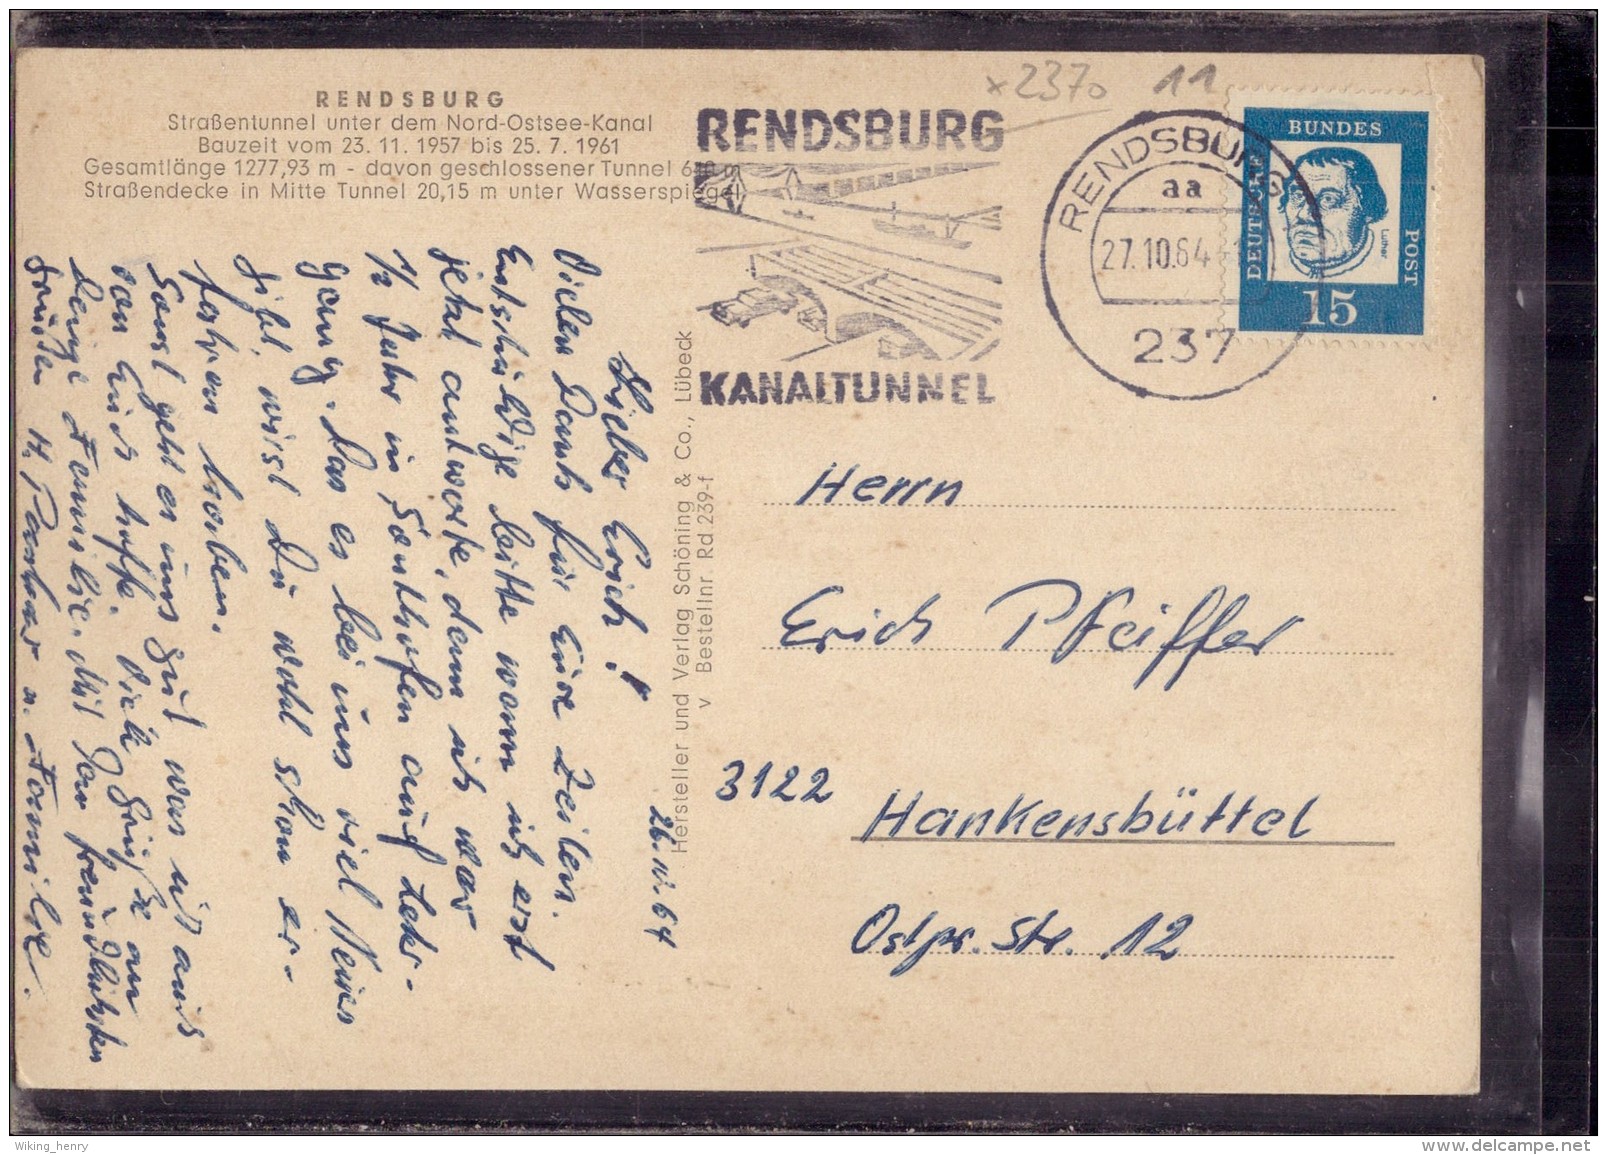 x2370 11
RENDSBURG
Straßentunnel unter dem Nord-Ostsee-Kanal
Bauzeit vom 23. 11. 1957 bis 25. 7. 1961
Gesamtlänge 1277,93 m - davon geschlossener Tunnel 640 m
Straßendecke in Mitte Tunnel 20,15 m unter Wasserspiegel
RENDSBURG
KANALTUNNEL
RENDSBURG
aa
27.10.64
237
DEUTSCHE
BUNDES
POST
Luther
15
26. 10. 64
Lieber Erich!
Vielen Dank für Eure Zeilen.
Entschuldige bitte wenn ich erst
jetzt antworte, denn ich war
1/2 Jahr in Sonthofen auf Lehr-
gang. Das es bei uns viel Neues
gibt, wirst Du wohl schon er-
fahren haben.
Sonst geht es uns gut was ich auch
von Euch hoffe. Viele Grüße an
Deine Familie. Mit den freundlichsten
Grüßen H. u. Familie.
Hersteller und Verlag Schöning & Co., Lübeck
v Bestellnr. Rd 239-f
Herrn
Erich Pfeiffer
3122
Hankensbüttel
Ostpr. Str. 12
Wiking_henry
www.delcampe.net